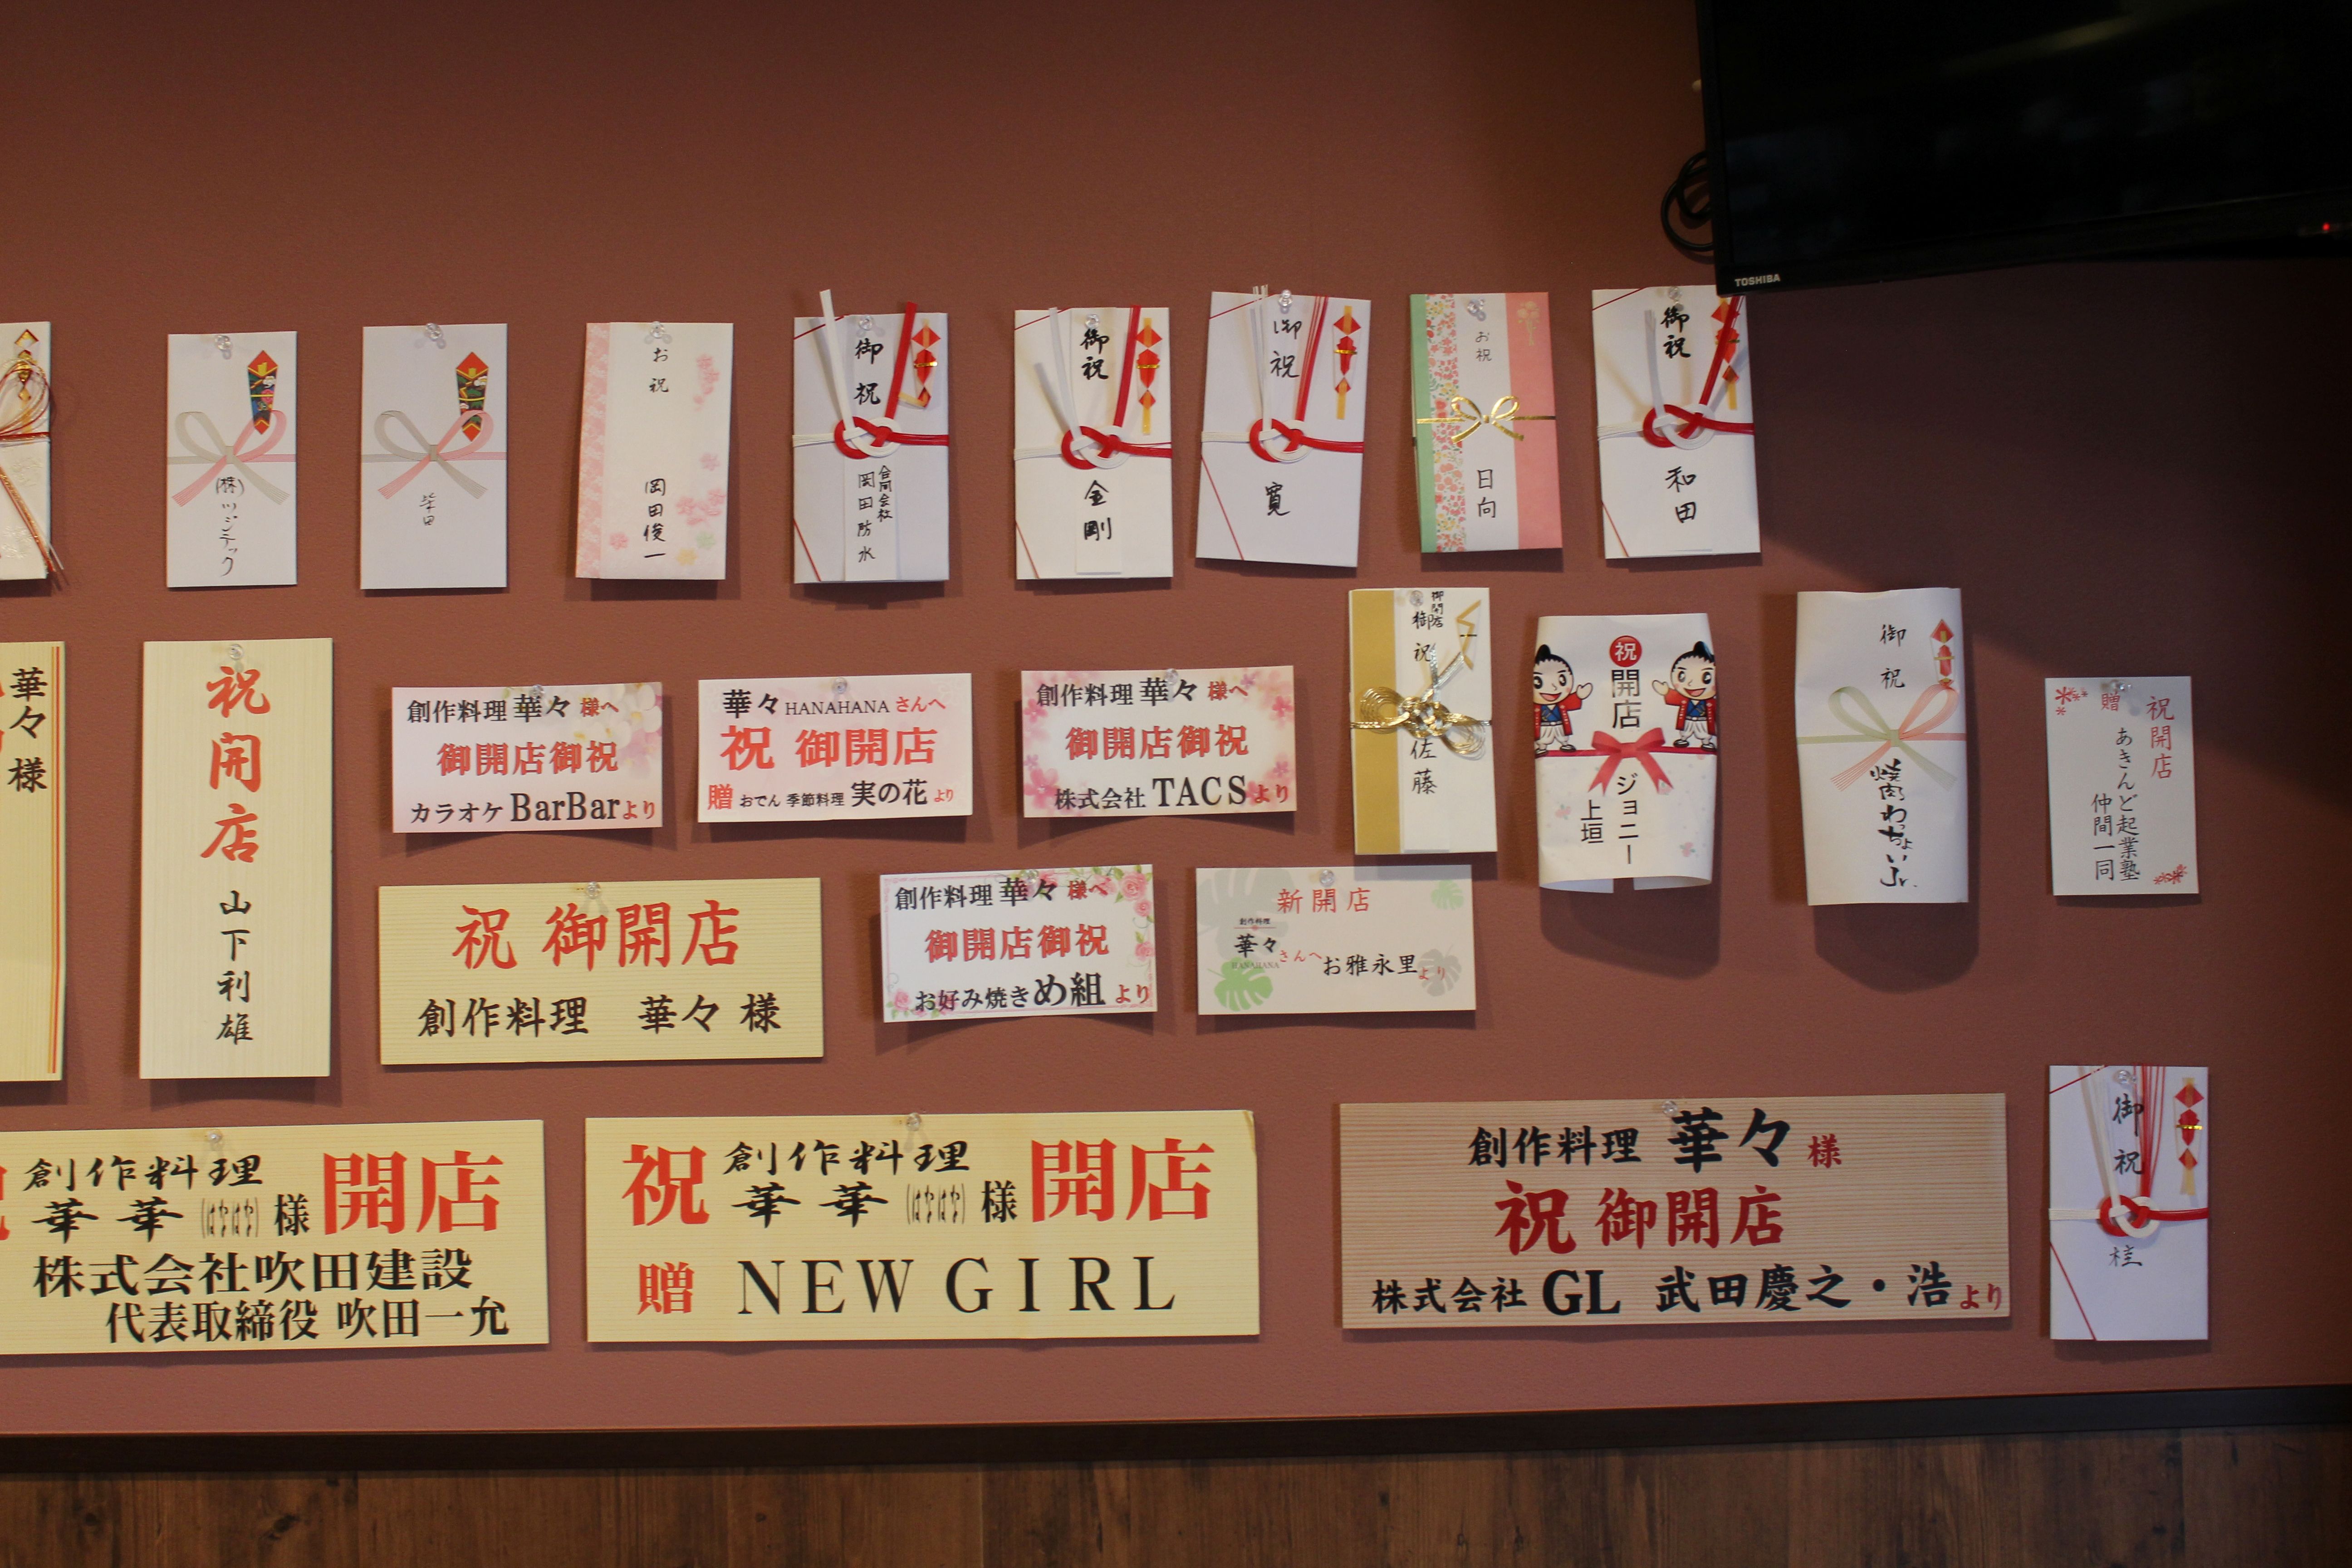 TOSHIBA
(株)ツジテック
柴田
お祝
岡田俊一
御祝
合同会社
岡田防水
御祝
金剛
御祝
寛
お祝
日向
御祝
和田
華々様
祝開店
山下利雄
創作料理 華々 様へ
御開店御祝
カラオケ BarBar より
華々 HANAHANA さんへ
祝 御開店
贈 おでん 季節料理 実の花 より
創作料理 華々 様へ
御開店御祝
株式会社 TACS より
御開店
御祝
佐藤
祝
開店
ジョニー
上垣
御祝
焼肉わっちょいJr.
祝開店
贈
あきんど起業塾
仲間一同
祝 御開店
創作料理 華々 様
創作料理 華々 様へ
御開店御祝
お好み焼き め組 より
新開店
創作料理
華々 さんへ
HANAHANA
お雅永里 より
創作料理
華華(はやはや)様 開店
株式会社吹田建設
代表取締役 吹田一允
祝 創作料理 華華(はやはや)様 開店
贈 NEW GIRL
創作料理 華々 様
祝 御開店
株式会社 GL 武田慶之・浩 より
御祝
桂